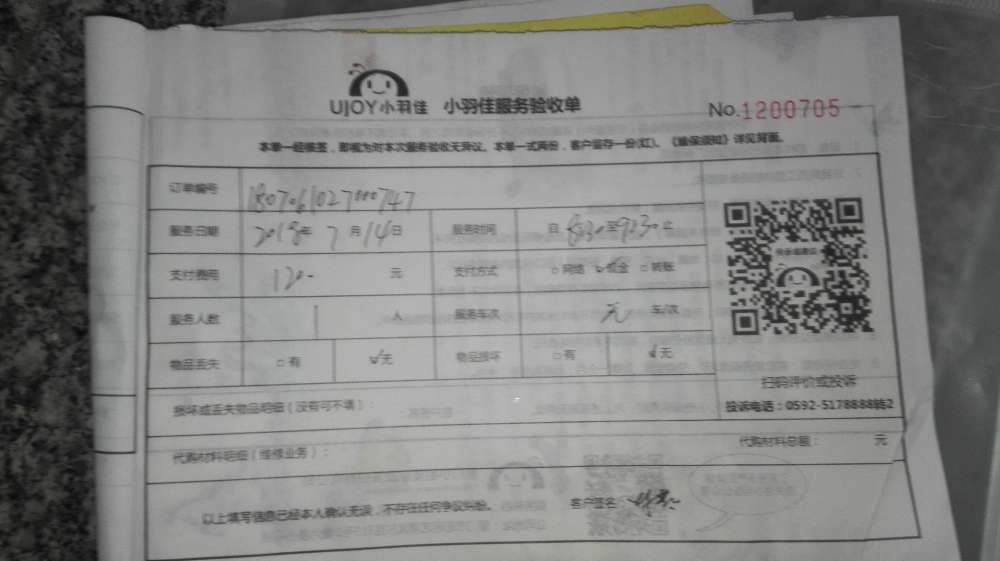 UJOY小羽佳 小羽佳服务验收单 No.1200705
本单一经签图，即视为对本次服务验收无异议。本单一式两份，客户留存一份(红)。《维保须知》详见背面。
订单编号 1807061027000747
服务日期 2018年 7月14日 服务时间 自 8:30至9:30止
支付费用 120 元 支付方式 □网络 ☑现金 □转账
服务人数 1 人 服务车次 无 车/次
物品丢失 □有 ☑无 物品损坏 □有 ☑无
扫码评价或投诉
损坏或丢失物品明细（没有可不填）： 投诉电话：0592-5178888转2
代购材料明细（维修业务）： 代购材料总额： 元
以上填写信息已经本人确认无误，不存在任何争议纠纷。 客户签名：